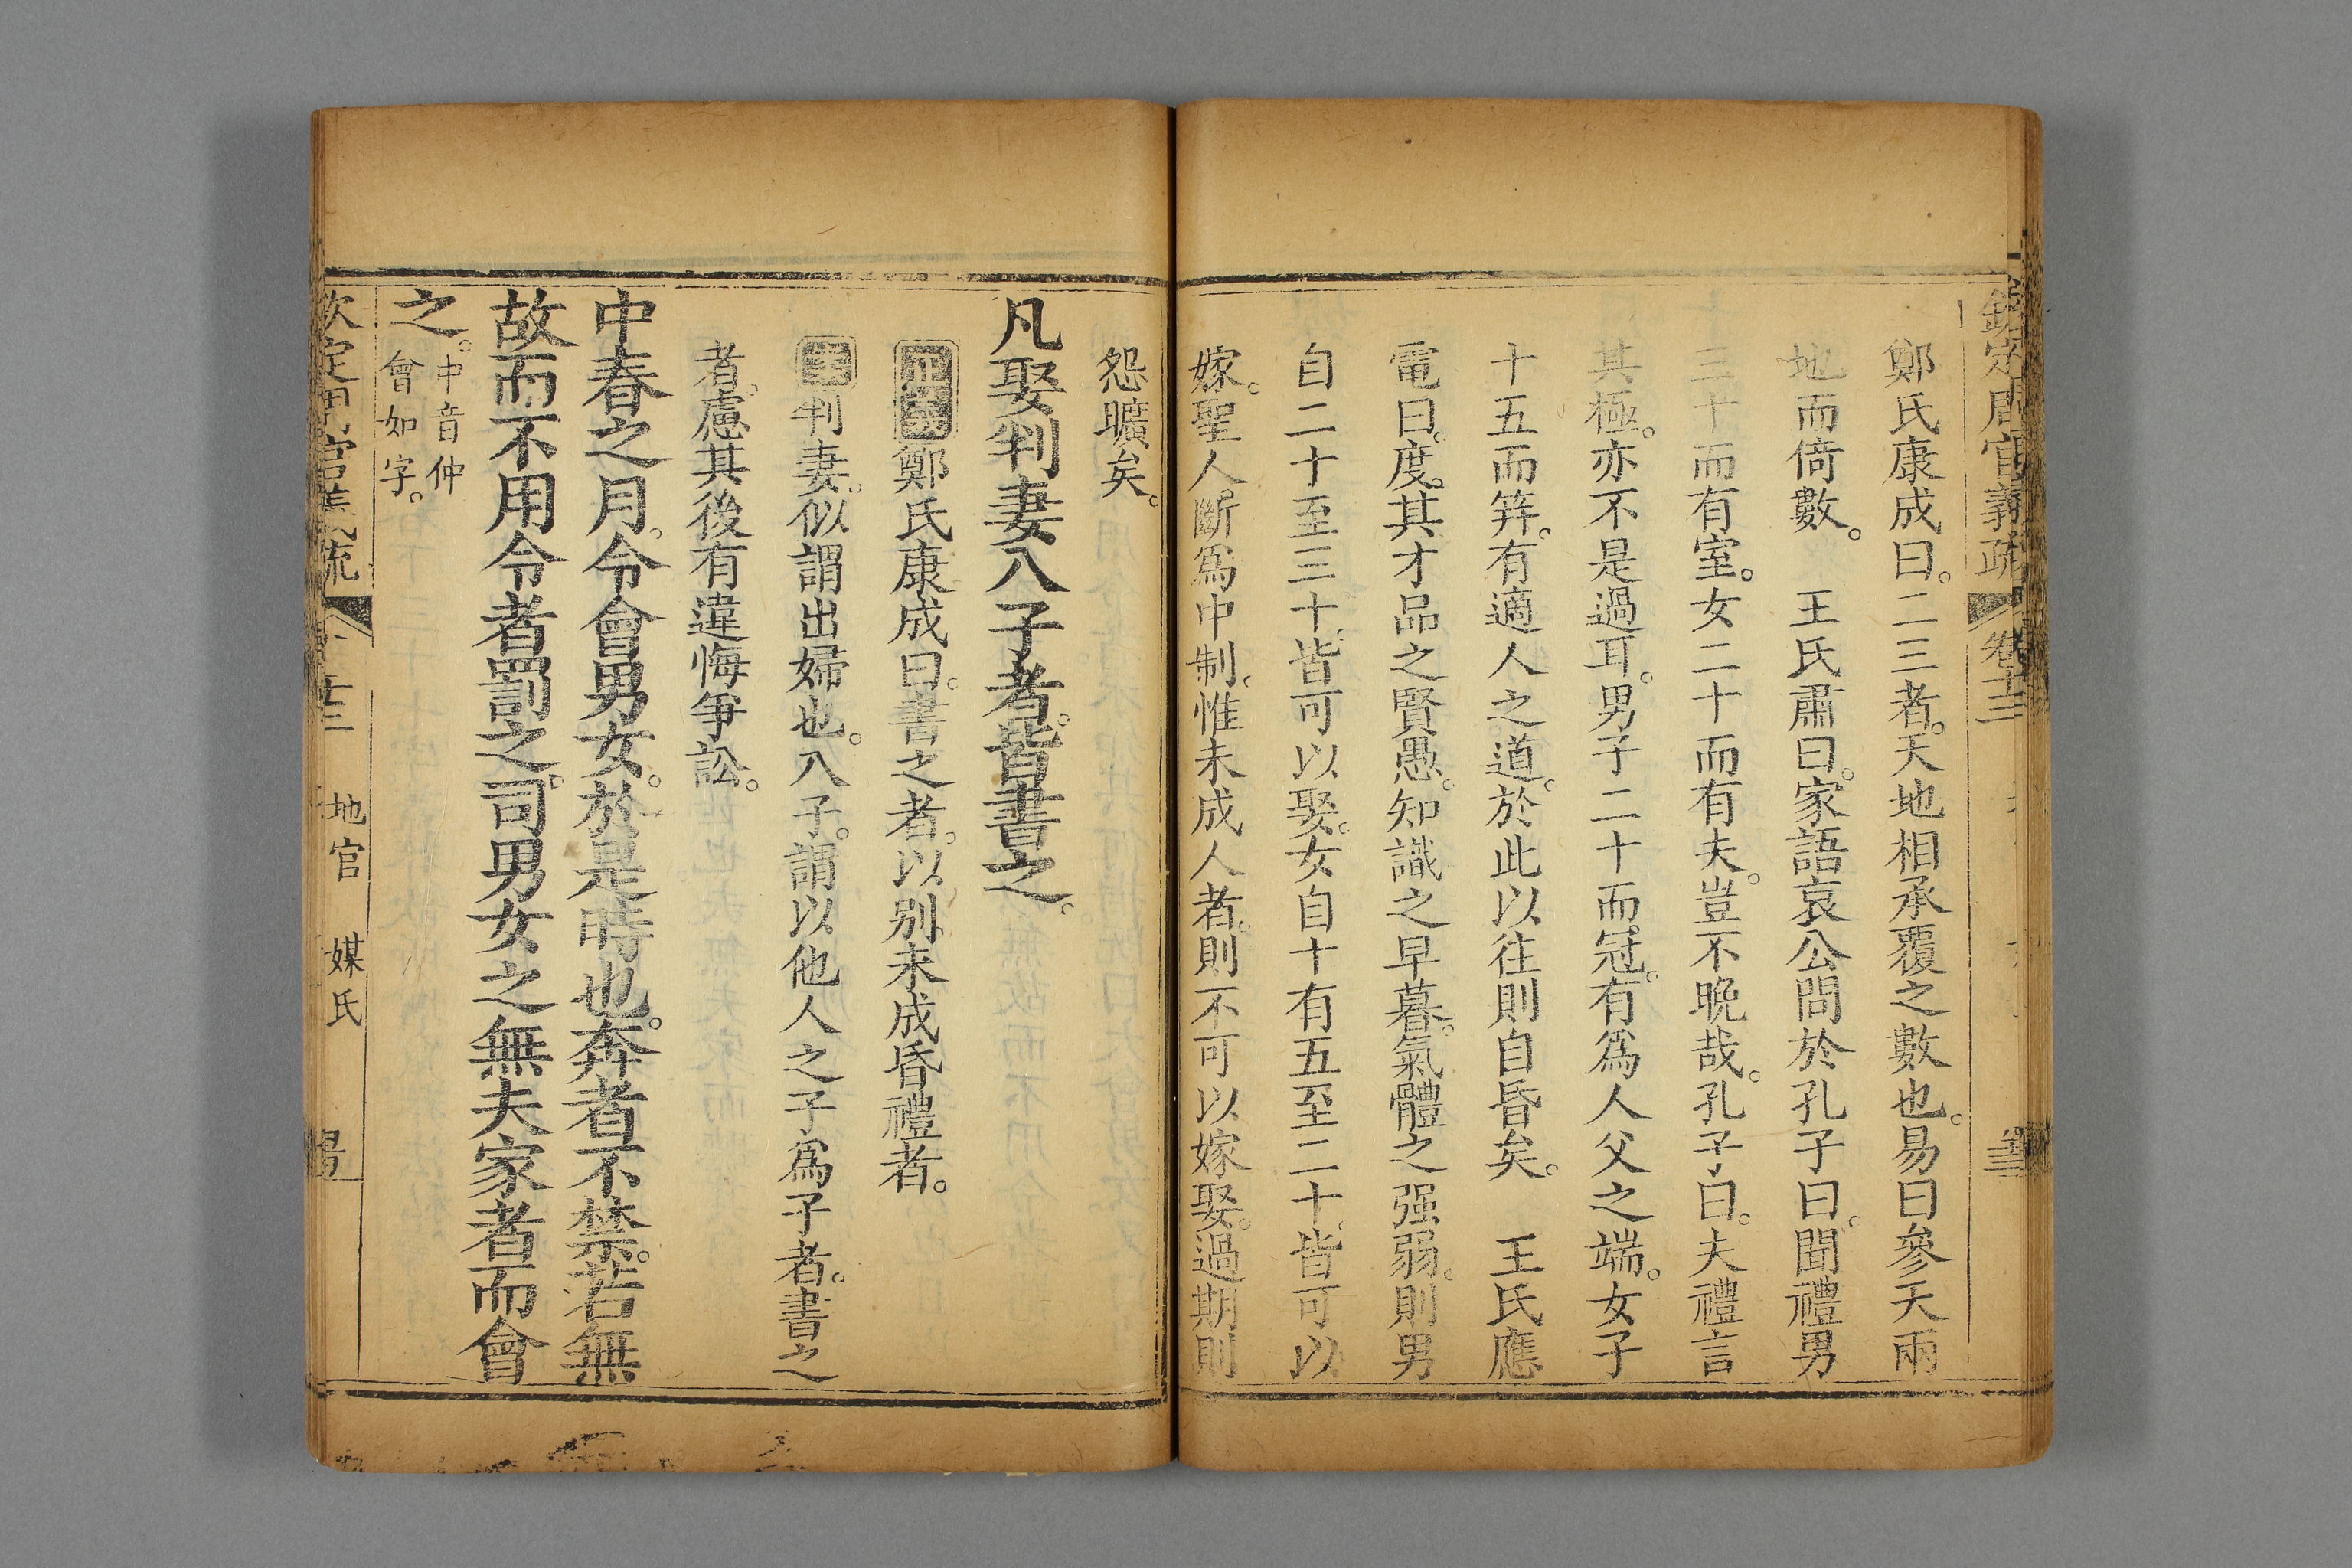 鄭氏康成曰。二三者。天地相承覆之數也。易曰參天兩
地而倚數。　王氏肅曰。家語哀公問於孔子曰。聞禮男
三十而有室。女二十而有夫。豈不晚哉。孔子曰。夫禮言
其極。亦不是過耳。男子二十而冠。有爲人父之端。女子
十五而筓。有適人之道。於此以往則自昏矣。　王氏應
電曰。度其才品之賢愚。知識之早暮。氣體之强弱。則男
自二十至三十。皆可以娶。女自十有五至二十。皆可以
嫁。聖人斷爲中制。惟未成人者。則不可以嫁娶。過期則
怨曠矣。
凡娶判妻入子者。皆書之。
正義鄭氏康成曰。書之者。以别未成昏禮者。
案判妻。似謂出婦也。入子。謂以他人之子爲子者。書之
者。慮其後有違悔爭訟。
中春之月。令會男女。於是時也。奔者不禁。若無
故而不用令者罰之。司男女之無夫家者而會
之。中音仲
會如字。
欽定周官義疏　地官　媒氏